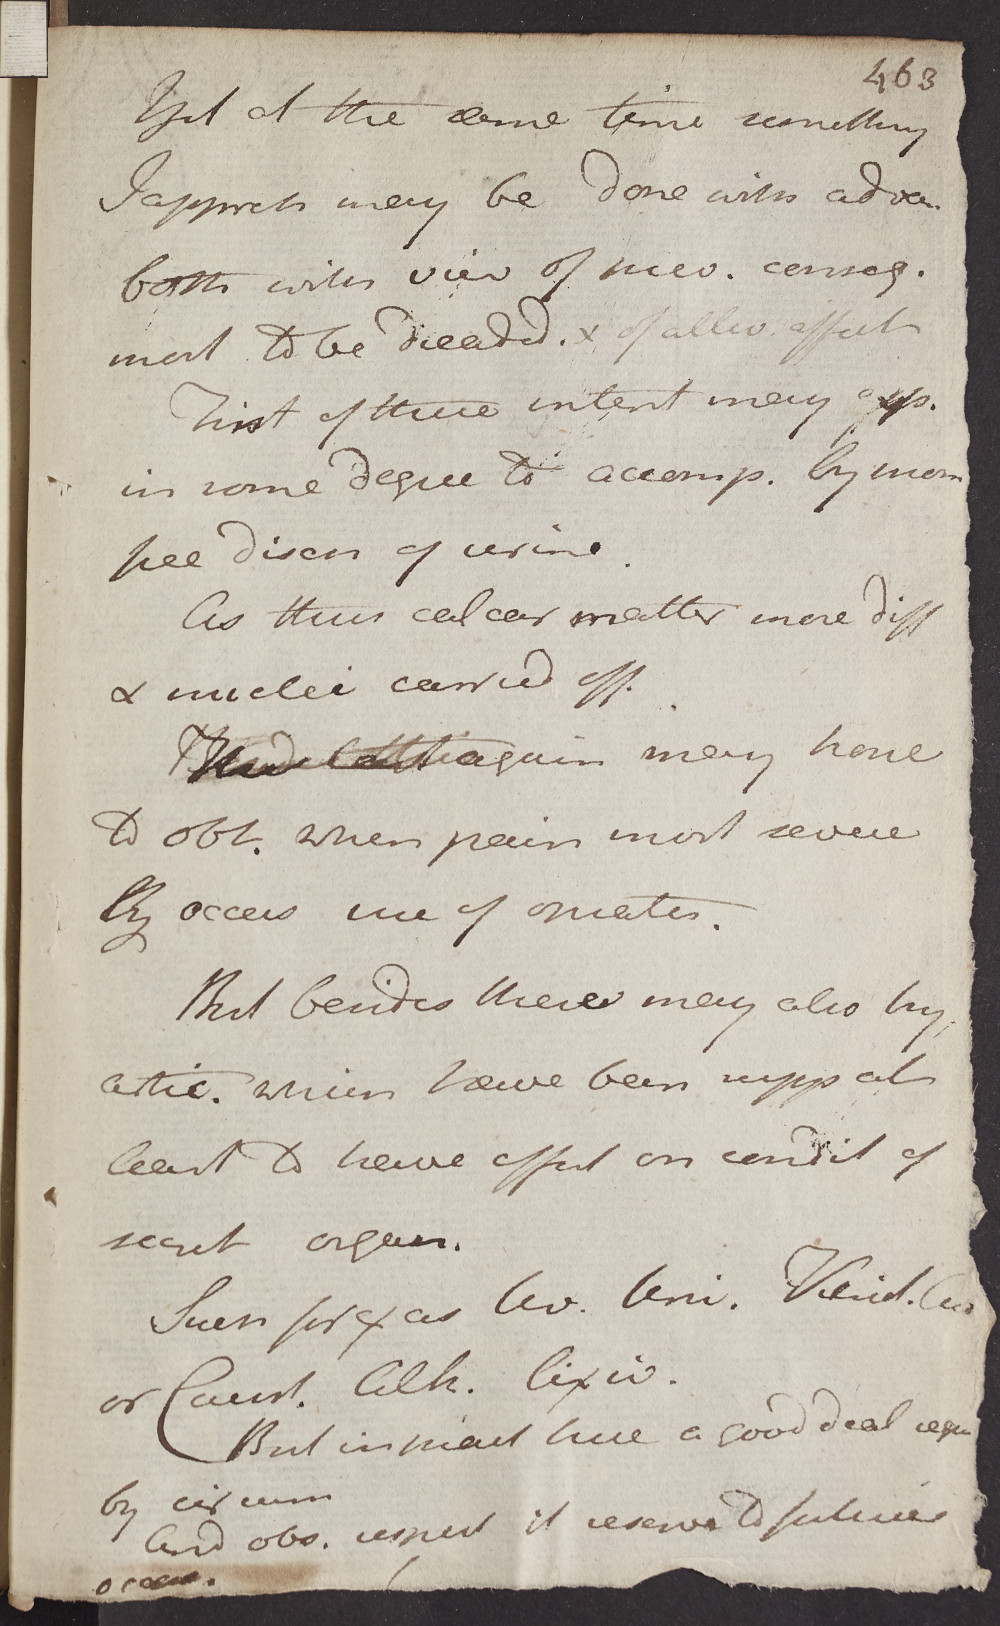 463
Yet at the same time something
I appreh may be done with advan.
both with view of prev. conseq.
most to be dreaded. & of allev. effects
First of these intent may exp.
in some degree to accomp. by mom
free disch of urine.
As thus calcar matter more diff
& nuclei carried off.
again may hope
to obt. when pain most severe
By occas use of opiates.
But besides these may also try
artic. which have been supp at
least to have effect on condit of
secret organ.
Such for ex as Uv. Ursi.
or Caust. Alk. lixiv.
But in pract here a good deal regu
by circum
And obs. respect it reserve to future
occas.